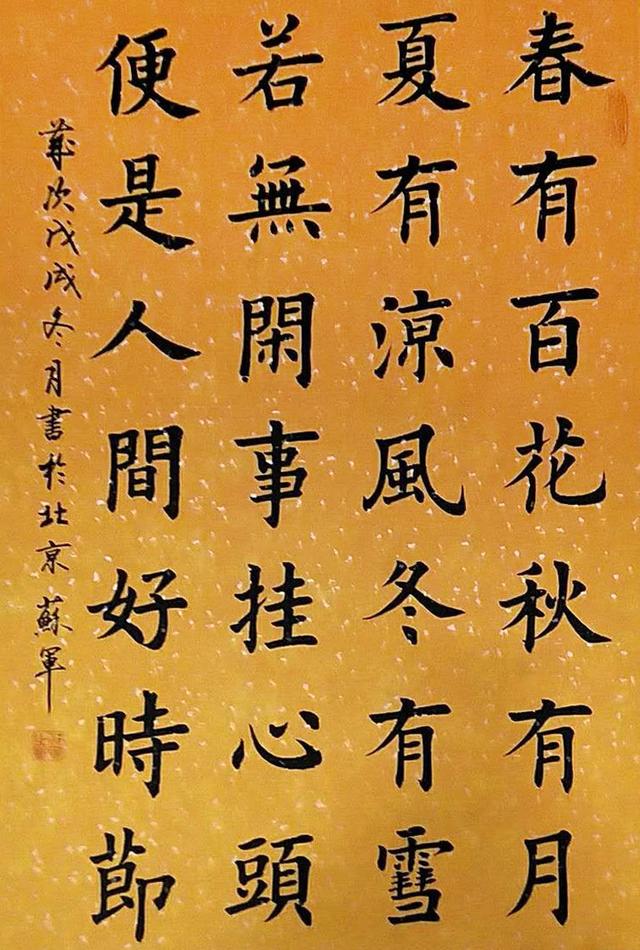 春有百花秋有月
夏有涼風冬有雪
若無閑事挂心頭
便是人間好時節
歲次戊戌冬月書於北京蘇軍